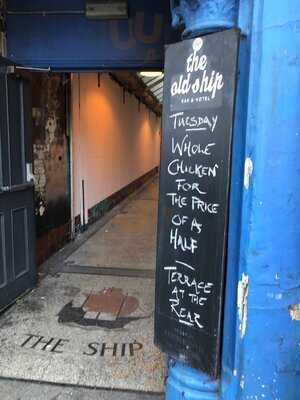 the
old ship
BAR & HOTEL
TUESDAY
WHOLE
CHICKEN
FOR
THE PRICE
OF A
HALF
TERRACE
AT THE
REAR
THE SHIP